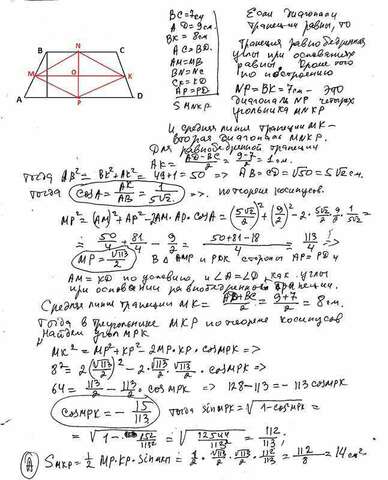 B N C
M O K
A P D
BC=7см
AD=9см
BK=8см
AC=BD.
AM=MB
BN=NC
CK=KD
AP=PD
SMNKP
Если диагонали
трапеции равны, то
трапеция равнобедренная
углы при основаниях
равны, кроме того
по построению
NP=BK=7см - это
диагональ NP четырех
угольника MNKP
и средняя линия трапеции MK-
вторая диагональ MNKP.
Для равнобедренной трапеции
AK = (AD-BC)/2 = (9-7)/2 = 1см.
Тогда AB² = BK²+AK² = 49+1=50 => AB=CD=√50=5√2 см.
Тогда cosA = AK/AB = 1/(5√2) => по теореме косинусов.
MP² = (AM)²+AP²-2AM·AP·cosA = (5√2/2)²+(9/2)²-2·5√2/2·9/2·1/(5√2) =
= 50/4 + 81/4 - 9/2 = (50+81-18)/4 = 113/4 =>
MP = √113/2 В ΔAMP и PDK стороны AP=PD и
AM=KD по условию, и ∠A=∠D, как углы
при основании равнобедренной трапеции.
Средняя линия трапеции MK = (AD+BC)/2 = (9+7)/2 = 8см.
Тогда в треугольнике MKP по теореме косинусов
найдем угол MPK
MK² = MP²+KP²-2MP·KP·cosMPK =>
8² = 2(√113/2)² - 2·√113/2·√113/2·cosMPK =>
64 = 113/2 - 113/2·cosMPK => 128-113=-113cosMPK
cosMPK = -15/113 тогда sinMPK=√1-cos²MPK =
= √1-15²/113² = √12544/113² = 112/113;
SMKP = 1/2 MP·KP·sinMKP = 1/2·√113/2·√113/2·112/113 = 112/8 = 14см²